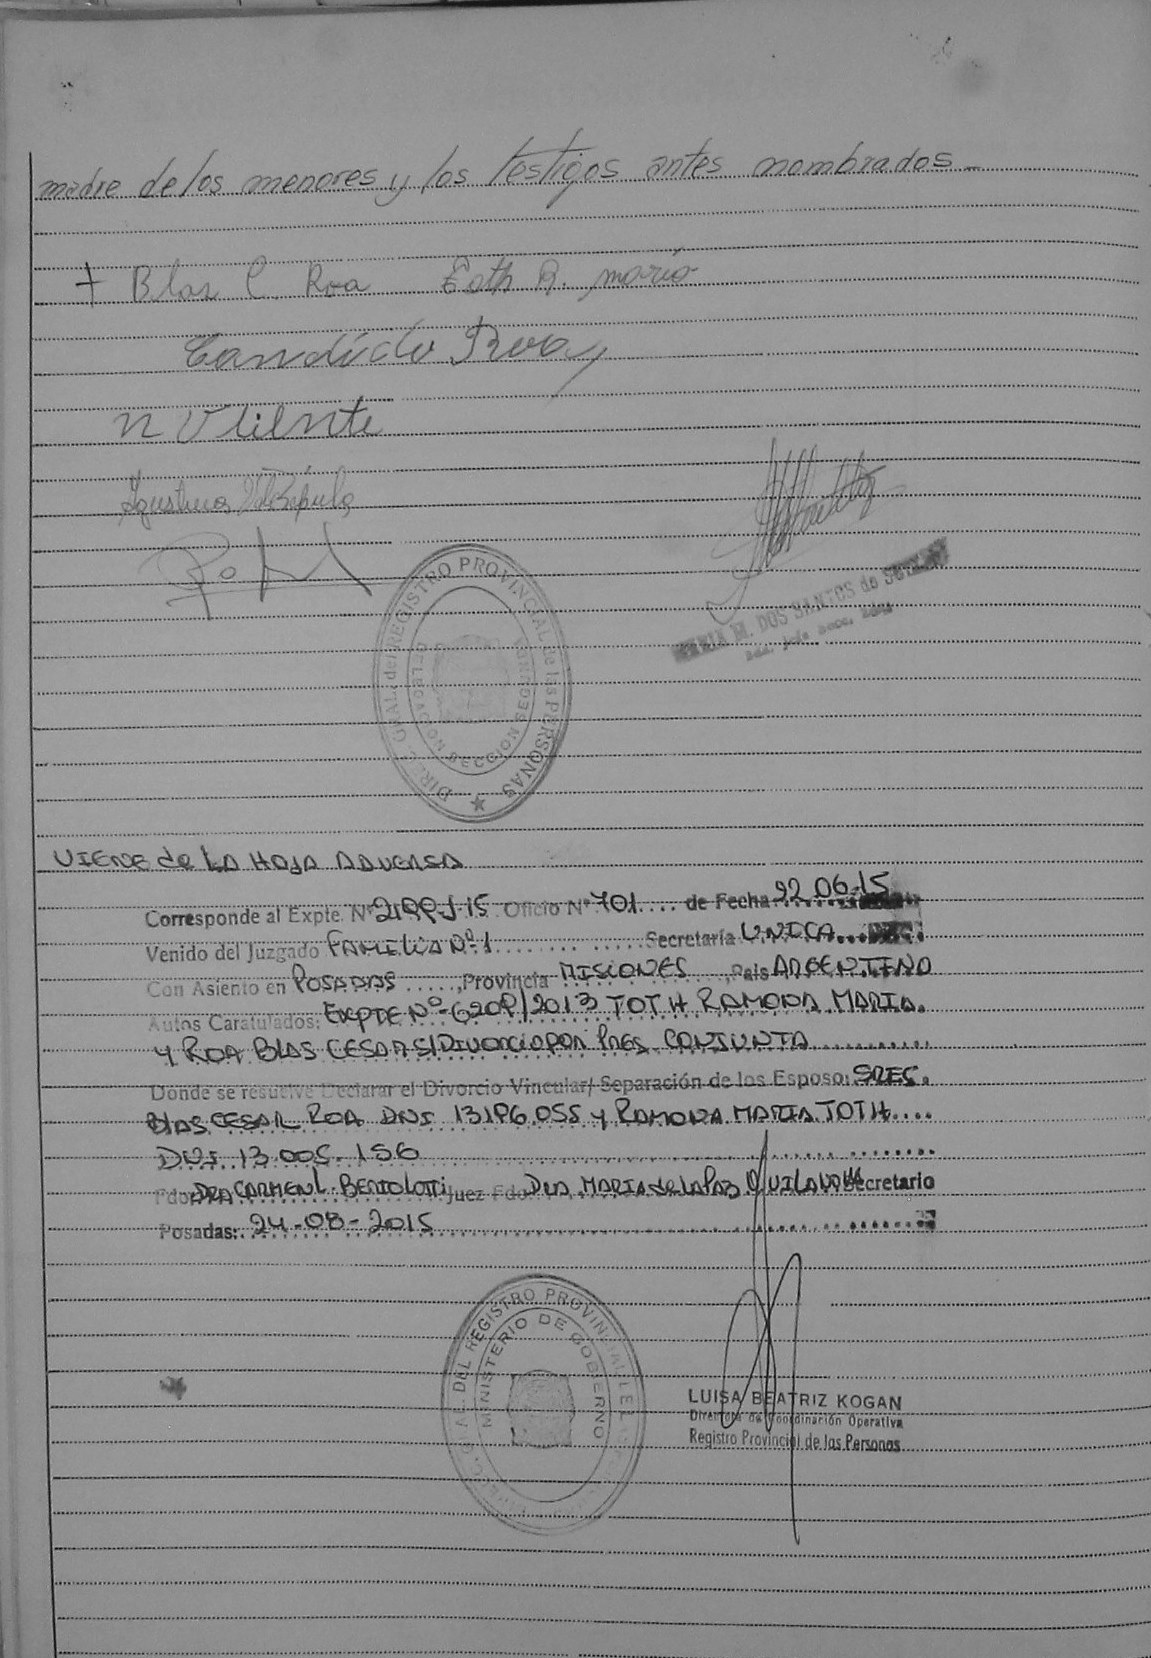 madre de los menores y los testigos antes nombrados -
+ Blas C. Roa Toth R. maria
Candido Roa
DIREC. GRAL. del REGISTRO PROVINCIAL de las PERSONAS
SECCION
MARIA M. DOS SANTOS de
VIENE de LA HOJA ADVERSA
Corresponde al Expte. Nº 2199-J-15 Oficio Nº 701.... de Fecha 22.06.15
Venido del Juzgado FAMILIA Nº 1 ........ Secretaría UNICA...
Con Asiento en POSADAS ....., Provincia MISIONES ...., País ARGENTINA
Autos Caratulados: EXPTE Nº- 6209/2013 TOTH RAMONA MARIA.
Y ROA BLAS CESAR S/DIVORCIO POR PRES. CONJUNTA
Donde se resuelve Declarar el Divorcio Vincular/ Separación de los Esposo: SRES.
BLAS CESAR ROA DNI 13.196.055 y RAMONA MARIA TOTH....
DNI. 13.005.156
Fdo: DRA CARMEN L. BERTOLOTTI Juez Fdo: DRA. MARIA de LA PAZ Secretario
Posadas: 24-08-2015
DIREC. GRAL. DEL REGISTRO PROVINCIAL DE
MINISTERIO DE GOBIERNO
LUISA BEATRIZ KOGAN
Directora de Coordinación Operativa
Registro Provincial de las Personas